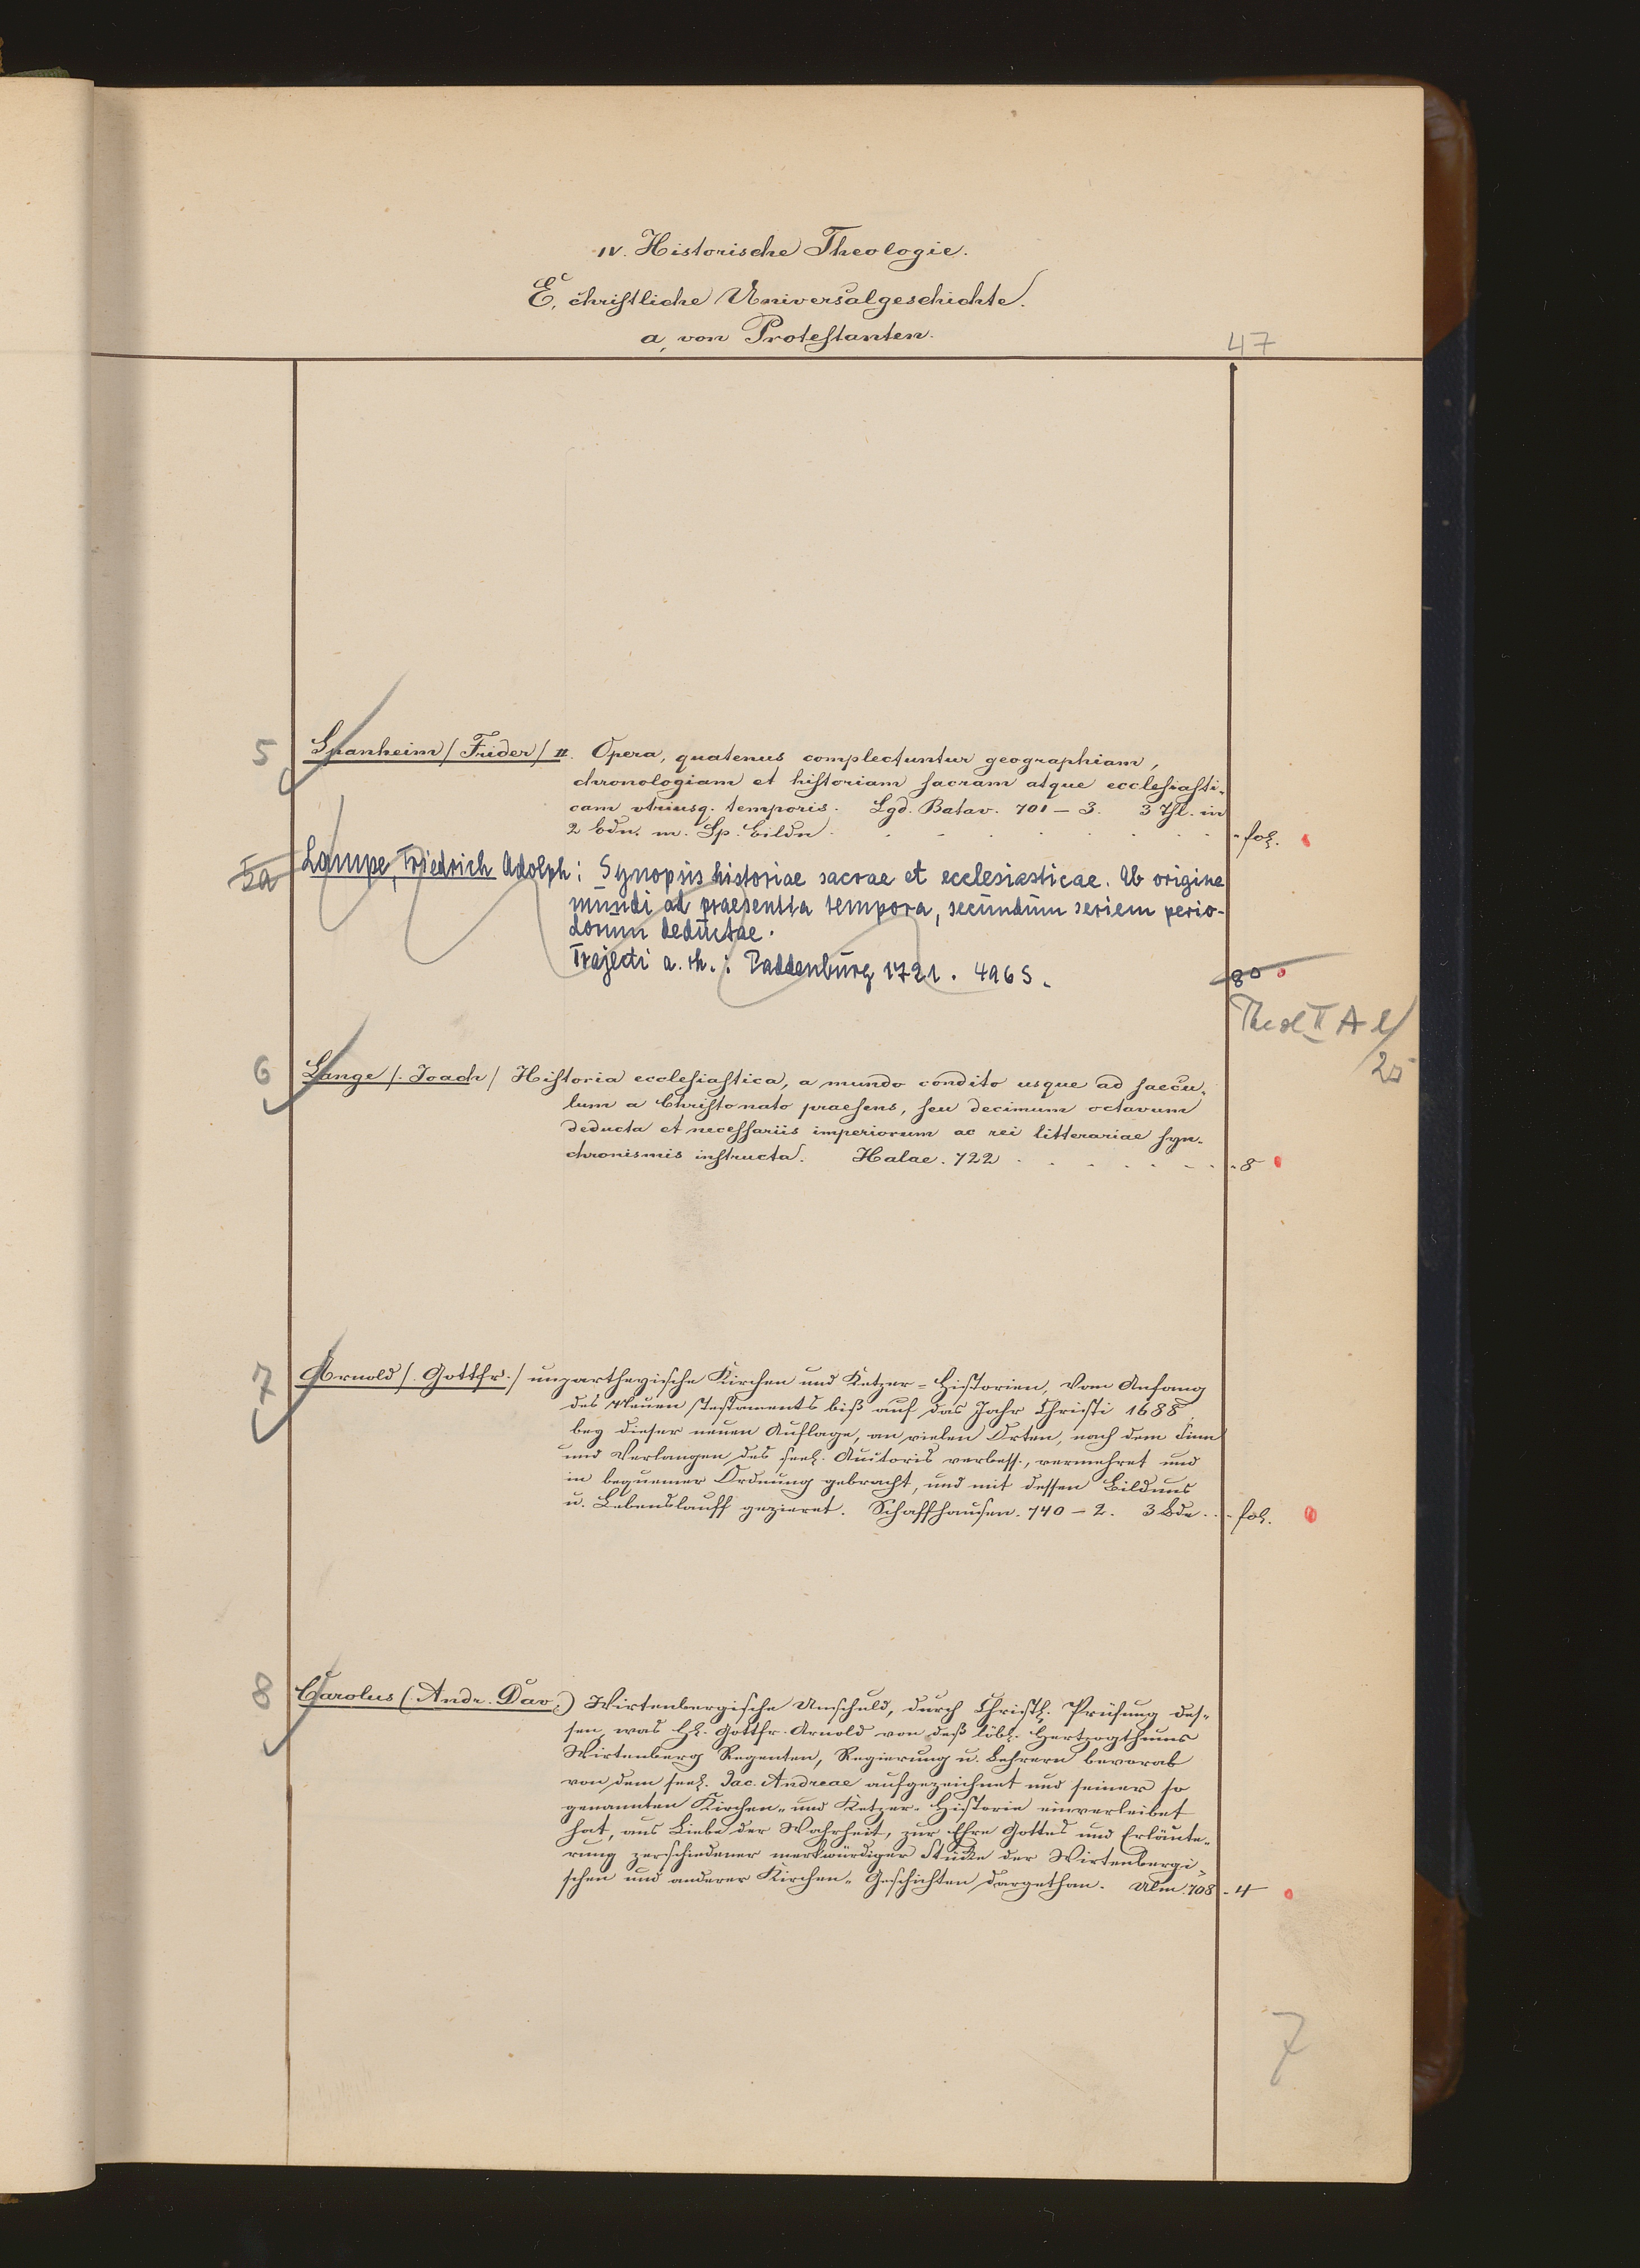 IV. Historische Theologie.
E, christliche Universalgeschichte.
a, von Protestanten.
47
5 Spanheim /Frider/ II. Opera, quatenus complectuntur geographiam,
chronologiam et historiam sacram atque ecclesiasti-
cam utriusq. temporis. Lgd. Batav. 701-3. 3 Thl. in
2 bdn. m. Sp. bildn. - fol.
5a Lampe, Friedrich Adolph: Synopsis historiae sacrae et ecclesiasticae. Ab origine
mundi ad praesentia tempora, secundum seriem perio-
dorum deductae.
Trajecti a. rh.: Paddenburg 1721. 496 S. 8°
Theol II A l/
25
6 Lange /. Joach/ Historia ecclesiastica, a mundo condito usque ad saecu-
lum a Christo nato praesens, seu decimum octavum
deducta et necessariis imperiorum ac rei litterariae syn-
chronismis instructa. Halae. 722 - 8
7 Arnold /. Gottfr./ unpartheyische Kirchen und Ketzer-Historien, vom Anfang
des Neuen Testaments biß auf das Jahr Christi 1688,
bey dieser neuen Auflage, an vielen Orten, nach dem Sinn
und Verlangen des seel. Auctoris verbess., vermehret und
in bequemer Ordnung gebracht, und mit dessen Bildnus
u. Lebenslauff gezieret. Schaffhausen. 740-2. 3 Bde. - fol.
8 Carolus (Andr. Dav.) Wirtenbergische Unschuld, durch Christl. Prüfung des-
sen, was H. Gottfr. Arnold von deß löbl. Hertzogthums
Wirtenberg Regenten, Regierung u. Lehrern bevorab
von dem seel. Jac. Andreae aufgezeichnet und seiner so
genannten Kirchen- und Ketzer-Historie einverleibet
hat, aus Liebe der Wahrheit, zur Ehre Gottes und Erläute-
rung verschiedener merkwürdiger Stücke der Wirtenbergi-
schen und anderer Kirchen-Geschichten dargethan. Ulm. 708 - 4
7